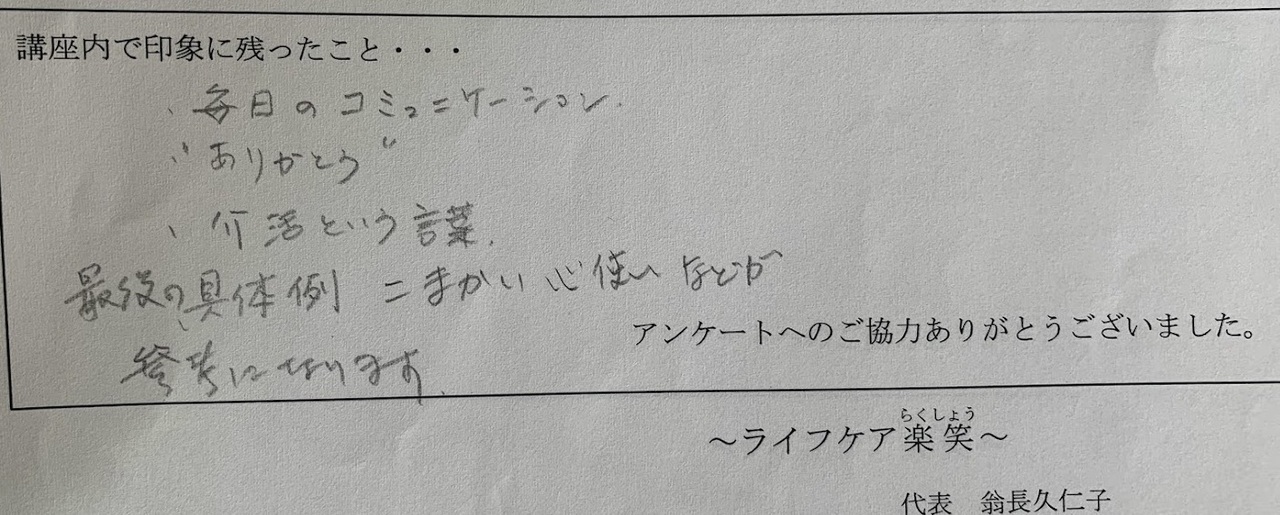 講座内で印象に残ったこと・・・
、毎日のコミュニケーション.
、"ありがとう"
、介活という言葉.
最後の具体例 こまかい心使いなどが
アンケートへのご協力ありがとうございました。
参考になります.
らくしょう
～ライフケア楽笑～
代表　翁長久仁子